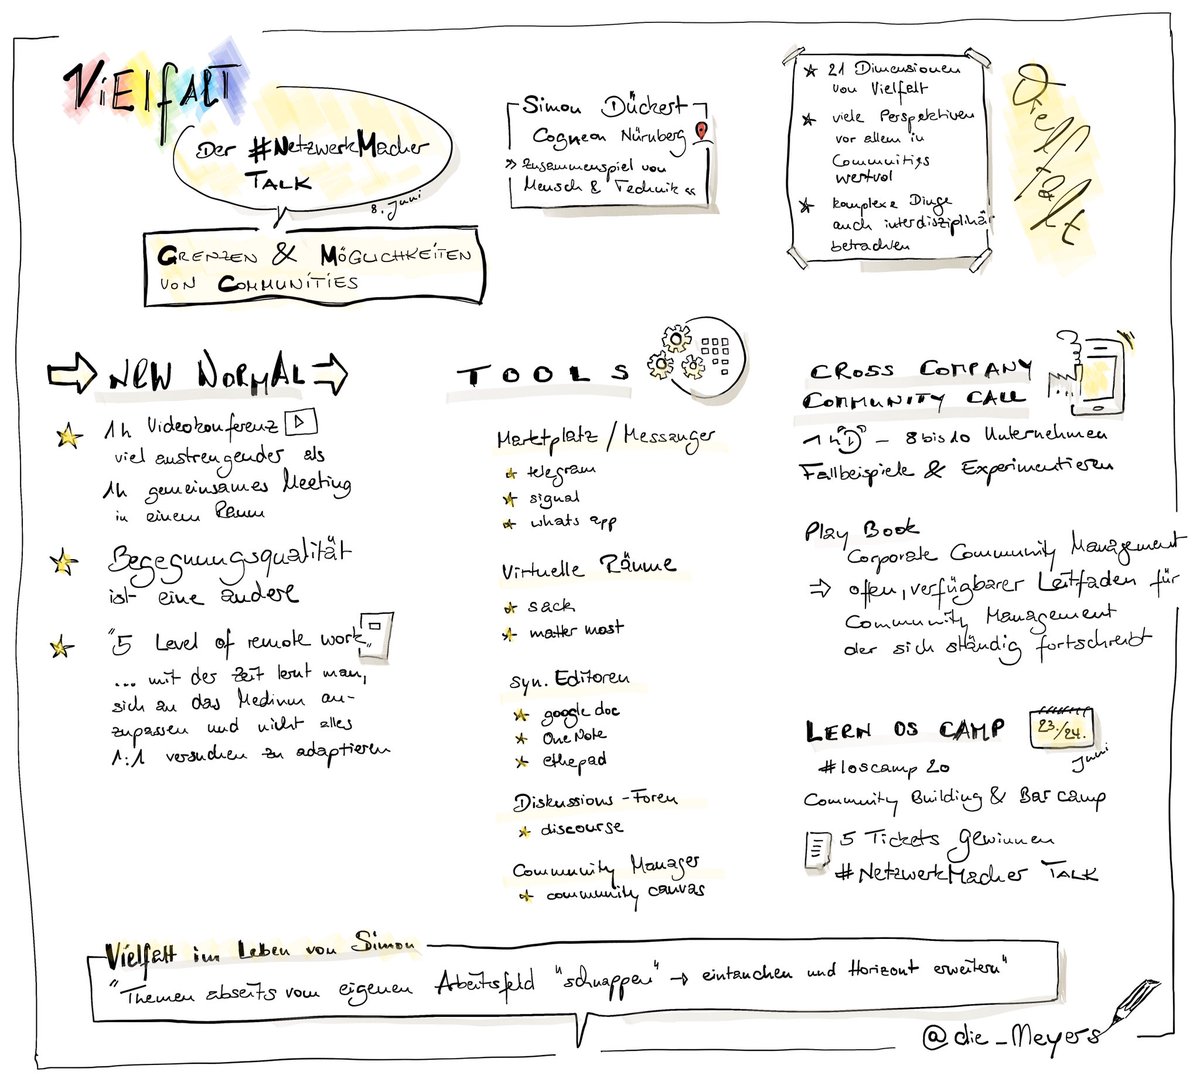 VIElfALT
Der #NetzwerkMacher
TALK
8. Juni
GRENZEN & MÖGLICHKEITEN
VON COMMUNITIES
Simon Dückert
Cogneon Nürnberg
» Zusammenspiel von
Mensch & Technik «
★ 21 Dimensionen
von Vielfalt
★ viele Perspektiven
vor allem in
Communities
wertvol
★ komplexe Dinge
auch interdisziplinär
betrachten
Vielfalt
NEW NORMAL
★ 1h Videokonferenz
viel anstrengender als
1h gemeinsames Meeting
in einem Raum
★ Begegnungsqualität
ist eine andere
★ "5 Level of remote work"
... mit der Zeit lernt man,
sich an das Medium an-
zupassen und nicht alles
1:1 versuchen zu adaptieren
TOOLS
Marktplatz / Messanger
★ telegram
★ signal
★ whats app
Virtuelle Räume
★ sack
★ matter most
syn. Editoren
★ google doc
★ OneNote
★ ethepad
Diskussions-Foren
★ discourse
Community Manager
★ community canvas
CROSS COMPANY
COMMUNITY CALL
1h – 8 bis 10 Unternehmen
Fallbeispiele & Experimentieren
Play Book
Corporate Community Management
⇒ offen, verfügbarer Leitfaden für
Community Management
der sich ständig fortschreibt
LERN OS CAMP
23./24.
Juni
#loscamp20
Community Building & Barcamp
5 Tickets gewinnen
#NetzwerkMacher TALK
Vielfalt im Leben von Simon
"Themen abseits vom eigenen Arbeitsfeld "schnappen" → eintauchen und Horizont erweitern"
@die_Meyers